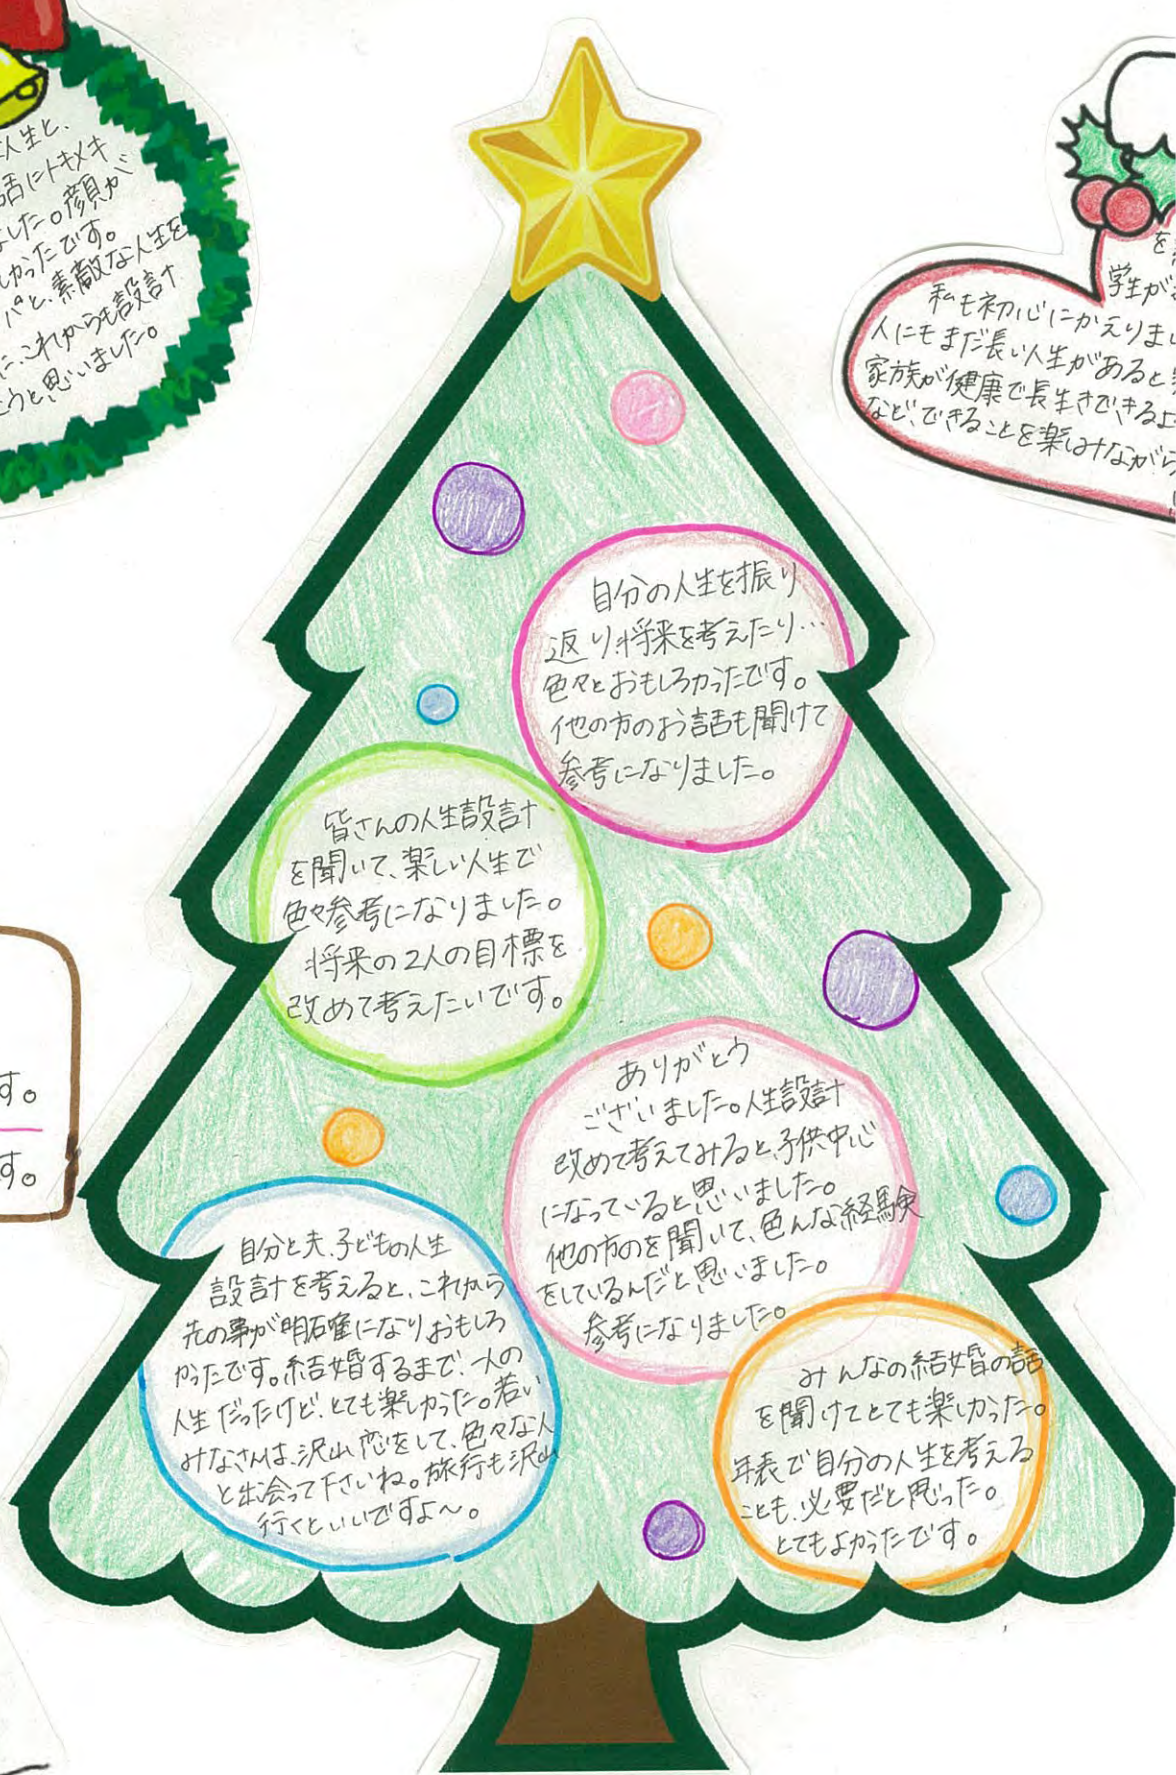 人生と、
話にトキメキ
ました。顔が
しかったです。
パと、素敵な人生を
に、これからも設計
ようと思いました。
学生が
私も初心にかえりまし
人にもまだ長い人生があると
家族が健康で長生きできるよ
など、できることを楽しみながら
自分の人生を振り
返り、将来を考えたり…
色々とおもしろかったです。
他の方のお話も聞けて
参考になりました。
皆さんの人生設計
を聞いて、楽しい人生で
色々参考になりました。
将来の2人の目標を
改めて考えたいです。
す。
す。
ありがとう
ございました。人生設計
改めて考えてみると、子供中心
になっていると思いました。
他の方のを聞いて、色んな経験
をしているんだと思いました。
参考になりました。
自分と夫、子どもの人生
設計を考えると、これから
先の事が明確になりおもしろ
かったです。結婚するまで、一人の
人生だったけど、とても楽しかった。若い
みなさんは、沢山恋をして、色々な人
と出会って下さいね。旅行も沢山
行くといいですよ〜。
みんなの結婚の話
を聞けてとても楽しかった。
年表で自分の人生を考える
ことも、必要だと思った。
とてもよかったです。